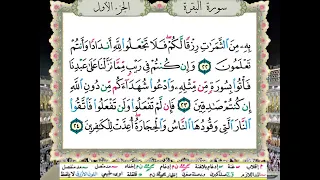 سورة البقرة
الجزء الأول
بِهِۦ مِنَ ٱلثَّمَرَٰتِ رِزْقًا لَّكُمْ ۖ فَلَا تَجْعَلُوا۟ لِلَّهِ أَندَادًا وَأَنتُمْ
تَعْلَمُونَ ٢٢ وَإِن كُنتُمْ فِى رَيْبٍ مِّمَّا نَزَّلْنَا عَلَىٰ عَبْدِنَا
فَأْتُوا۟ بِسُورَةٍ مِّن مِّثْلِهِۦ وَٱدْعُوا۟ شُهَدَآءَكُم مِّن دُونِ ٱللَّهِ
إِن كُنتُمْ صَٰدِقِينَ ٢٣ فَإِن لَّمْ تَفْعَلُوا۟ وَلَن تَفْعَلُوا۟ فَٱتَّقُوا۟
ٱلنَّارَ ٱلَّتِى وَقُودُهَا ٱلنَّاسُ وَٱلْحِجَارَةُ ۖ أُعِدَّتْ لِلْكَٰفِرِينَ ٢٤